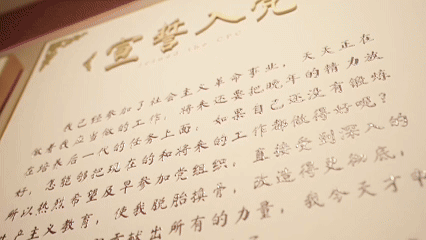 宣誓入党
我已经参加了社会主义革命事业，天天正在
做着我应当做的工作，将来还要把晚年的精力放
在培养后一代的任务上面；如果自己还没有锻炼
好，怎能够把现在的和将来的工作都做得好呢？
所以热烈希望及早参加党组织，直接受到深入的
共产主义教育，使我脱胎换骨，改造得更彻底，
献出所有的力量，我今天才